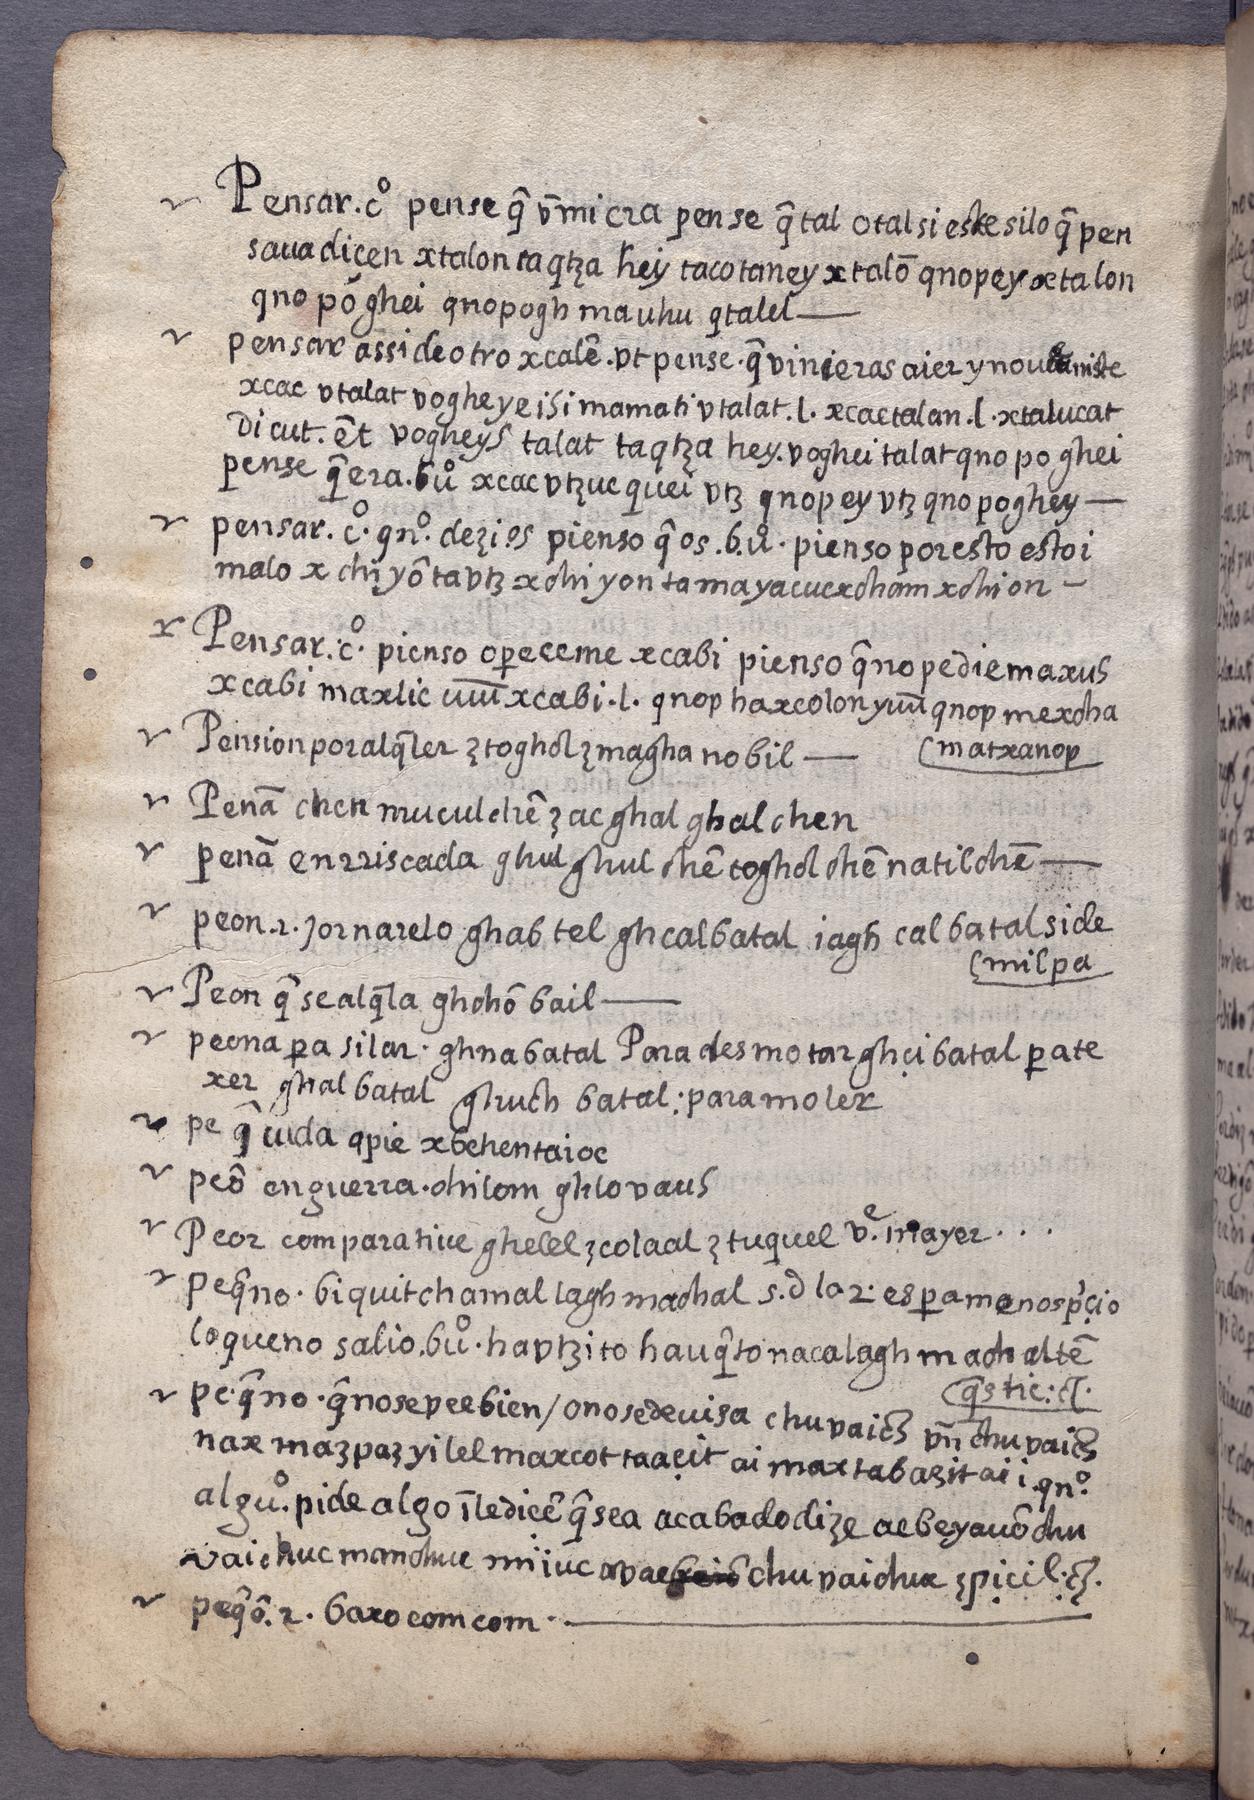 Pensar. cº pense q̃ vm̃i cra pense q̃ tal o tal si este silo q̃ pen
saua dicen xtalon ta qtza hey taco taney x talō qnopey xtalon
qno pó ghei qnopogh ma uhu qtalel—
pensar assi de otro xcalē. vt pense. q̃ vinieras aier y no
xcac vtalat vogheye isi mamati vtalat. l. xcac talan. l. xtalucat
Di cut. ēt vogheys talat ta qtza hey. voghei talat qno po ghei
pense q̃ era. buº xcac vtzuc quei vtz qnopey vtz qno poghey—
pensar. cº. qnº. dezios pienso q̃ os. buº. pienso por esto estoi
malo x chi yō ta vtz x chi yon ta mayacucxcham xchi on —
Pensar. cº. pienso o pececme xcabi pienso q̃ no pedie maxus
xcabi maxlic xcabi. l. qnop haxcolon qnop mexcha
(matxanop
Pension por alq̃ler ztoghol zmagha no bil —
Penā chen muculchē zac ghal ghal chen
penā enrriscada ghul ghul chē toghol chē natilchē—
peon. r. Jornarelo ghab tel ghcalbatal iagh calbatal side
(milpa
Peon q̃ se alq̃la ghchō bail—
peona pa silar. ghnabatal Para desmotar ghcibatal pa te
xer ghalbatal ghuch batal: para moler
pe q̃ uida qpie xbehentaioc
peō en guerra. chilom ghlovaus
Peor comparatiue ghelel zcolaal ztuquel ve. mayer. . . .
peq̃no. biquit chamal lagh machal s. d la r. es pa menospcio
lo queno salio. buº. ha vtzito hauq̃to nacalagh mach altē
(q̃s tic: cſ.
pe. q̃no. q̃ no se vee bien / o no se deuisa chu vaich vñ chu vaich
nax maz paz yilel maxcot taacit ai max tabazit ai i. qnº.
alguº. pide algo īle dicē q̃ sea acabado dize aebeyauō chu
vaichuc manchuc miiuc chu vaichux zpicil. cſ.
peq̃ō. r. baxo com com. —